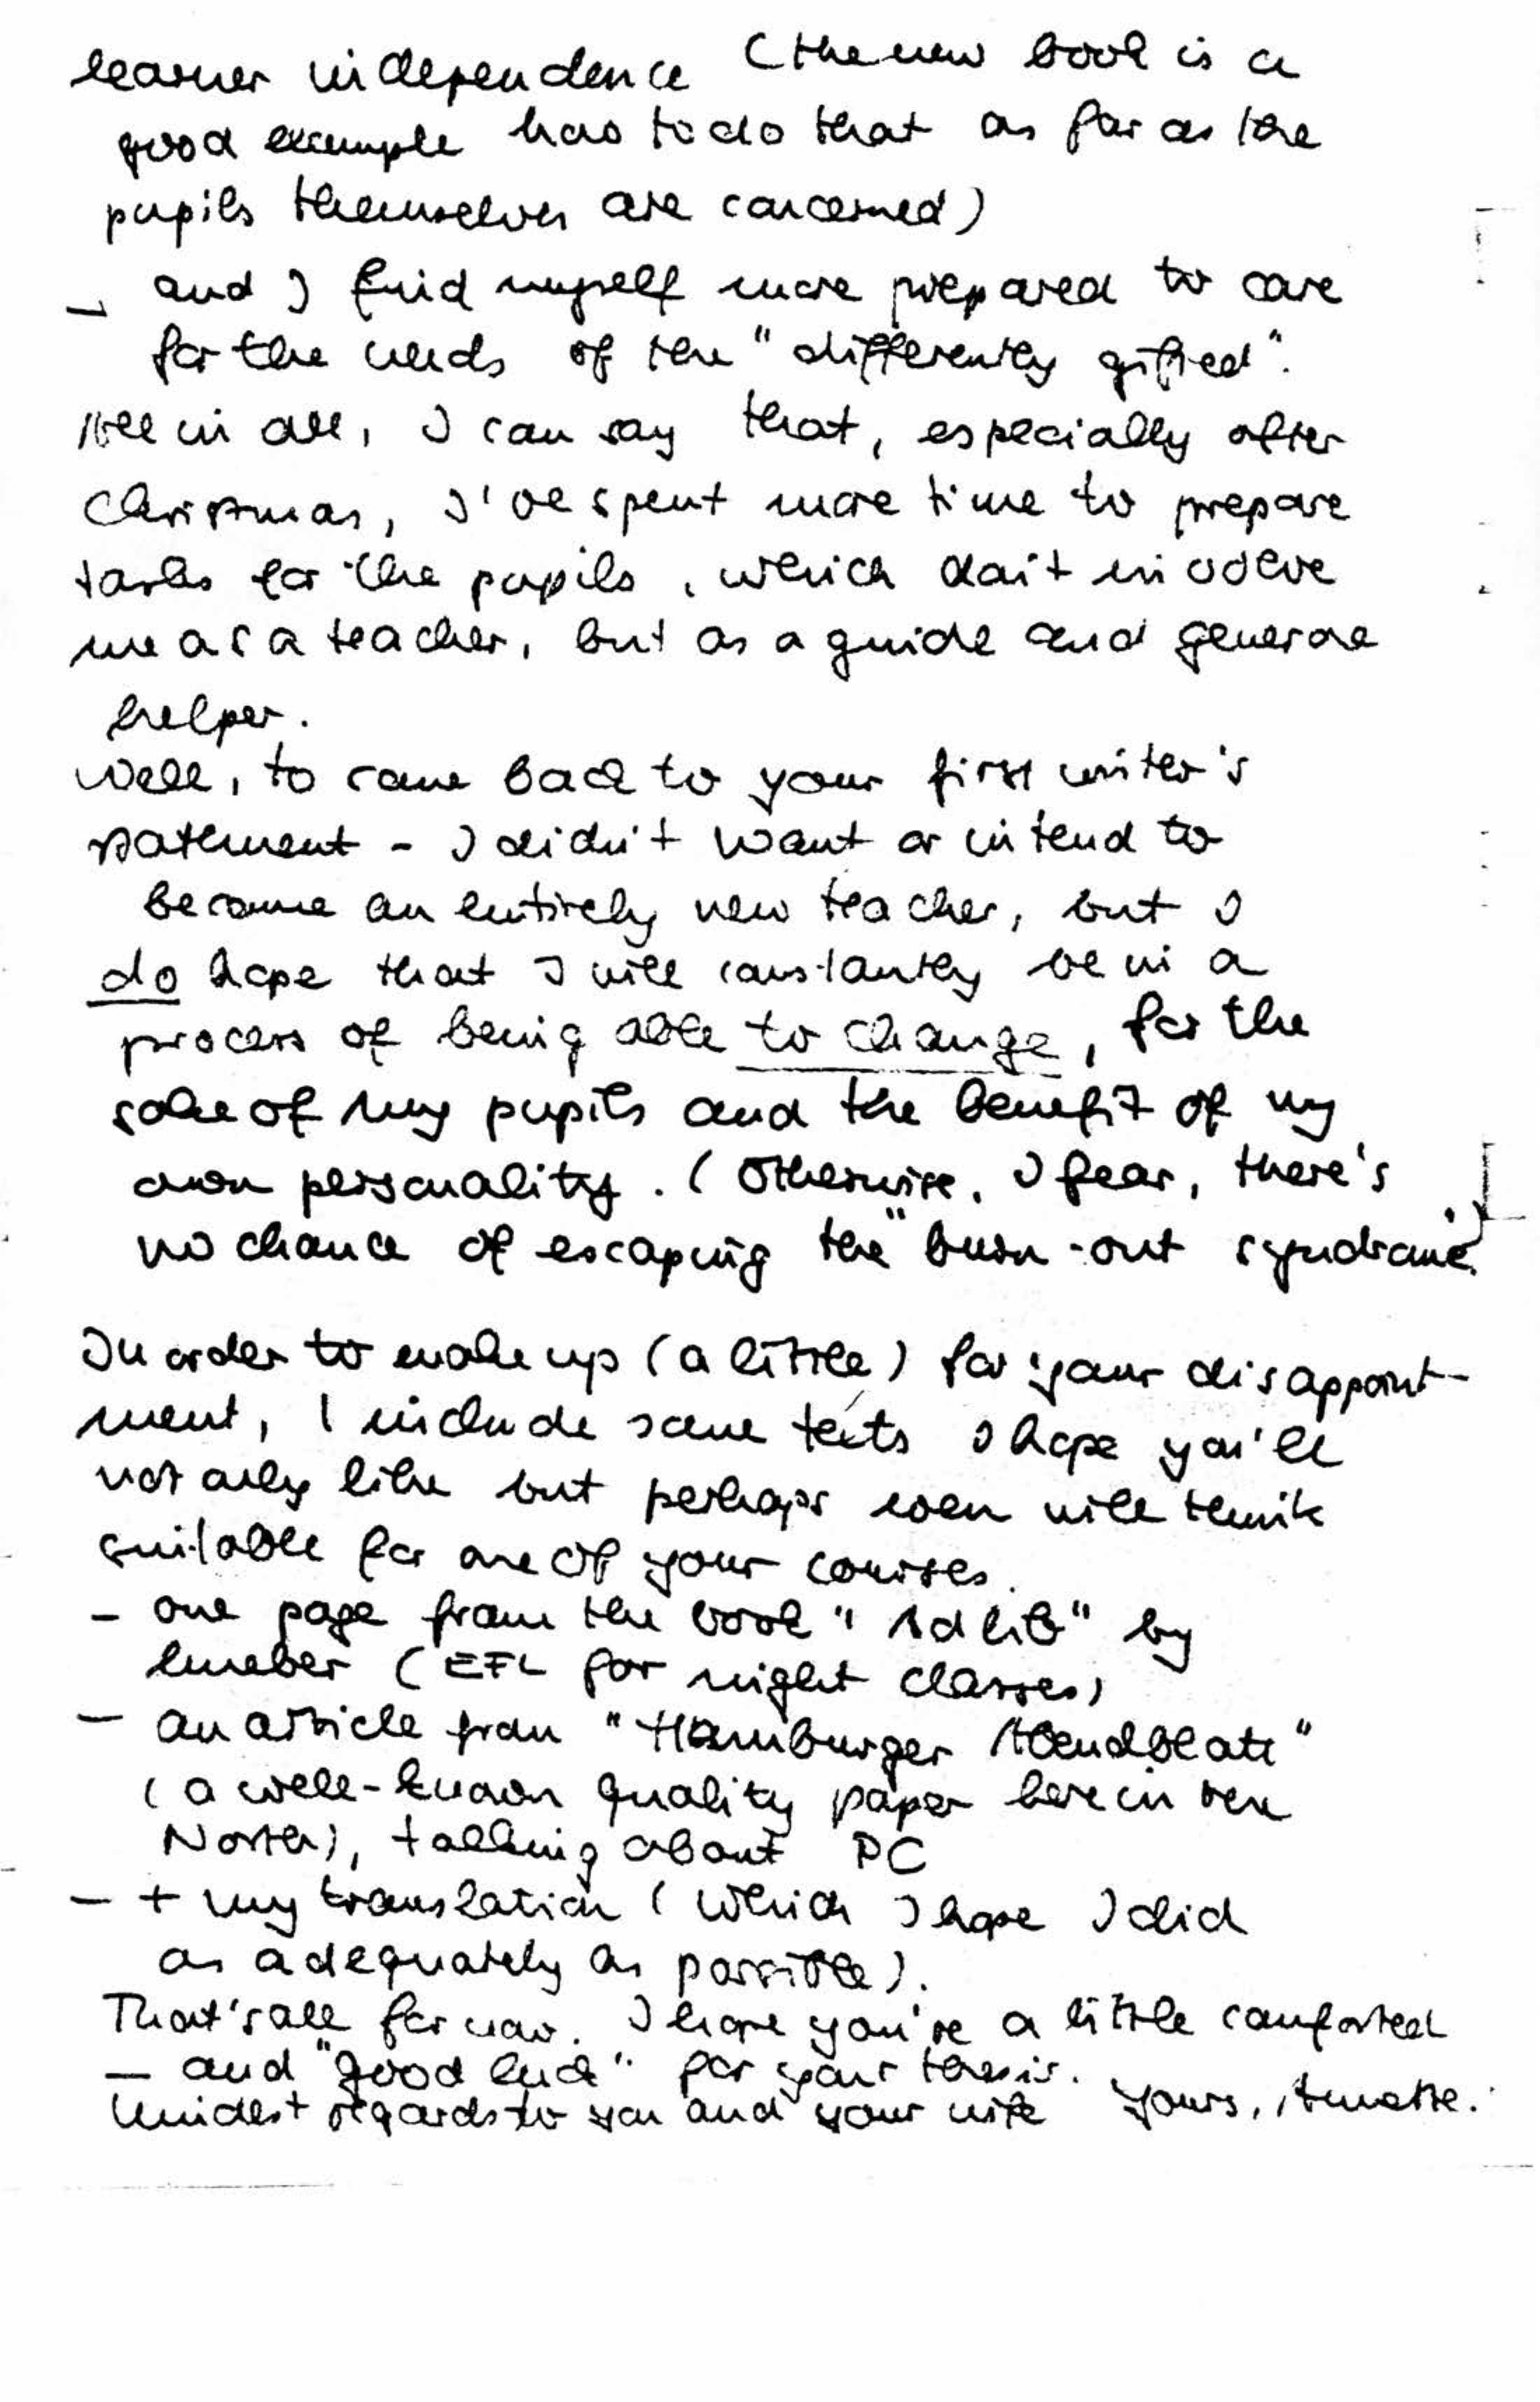 learner independence (the new book is a
good example how to do that as far as the
pupils themselves are concerned)
- and I find myself more prepared to care
for the needs of the "differently gifted".
All in all, I can say that, especially after
Christmas, I've spent more time to prepare
tasks for the pupils, which don't involve
me as a teacher, but as a guide and general
helper.
Well, to come back to your first writer's
statement - I didn't want or intend to
become an entirely new teacher, but I
do hope that I will constantly be in a
process of being able to change, for the
sake of my pupils and the benefit of my
own personality. (Otherwise, I fear, there's
no chance of escaping the "burn-out syndrome".)
In order to make up (a little) for your disappoint-
ment, I include some texts I hope you'll
not only like but perhaps even will think
suitable for one of your courses.
- one page from the book "Ad lib" by
(EFL for night classes)
- an article from "Hamburger Abendblatt"
(a well-known quality paper here in the
North), talking about PC
- + my translation (which I hope I did
as adequately as possible).
That's all for now. I hope you're a little comforted
- and "good luck" for your thesis.
Kindest regards to you and your wife Yours,